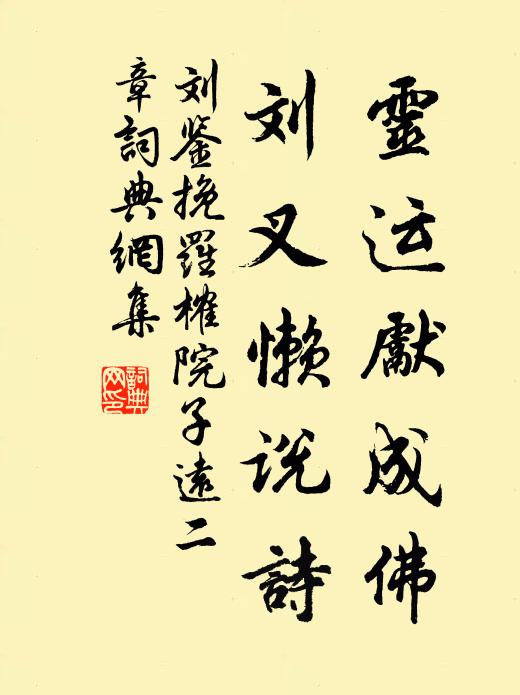 靈运獻成佛
刘叉懒说詩
刘鉴挽羅榷院子遠二
章詞典網集
詞典网印